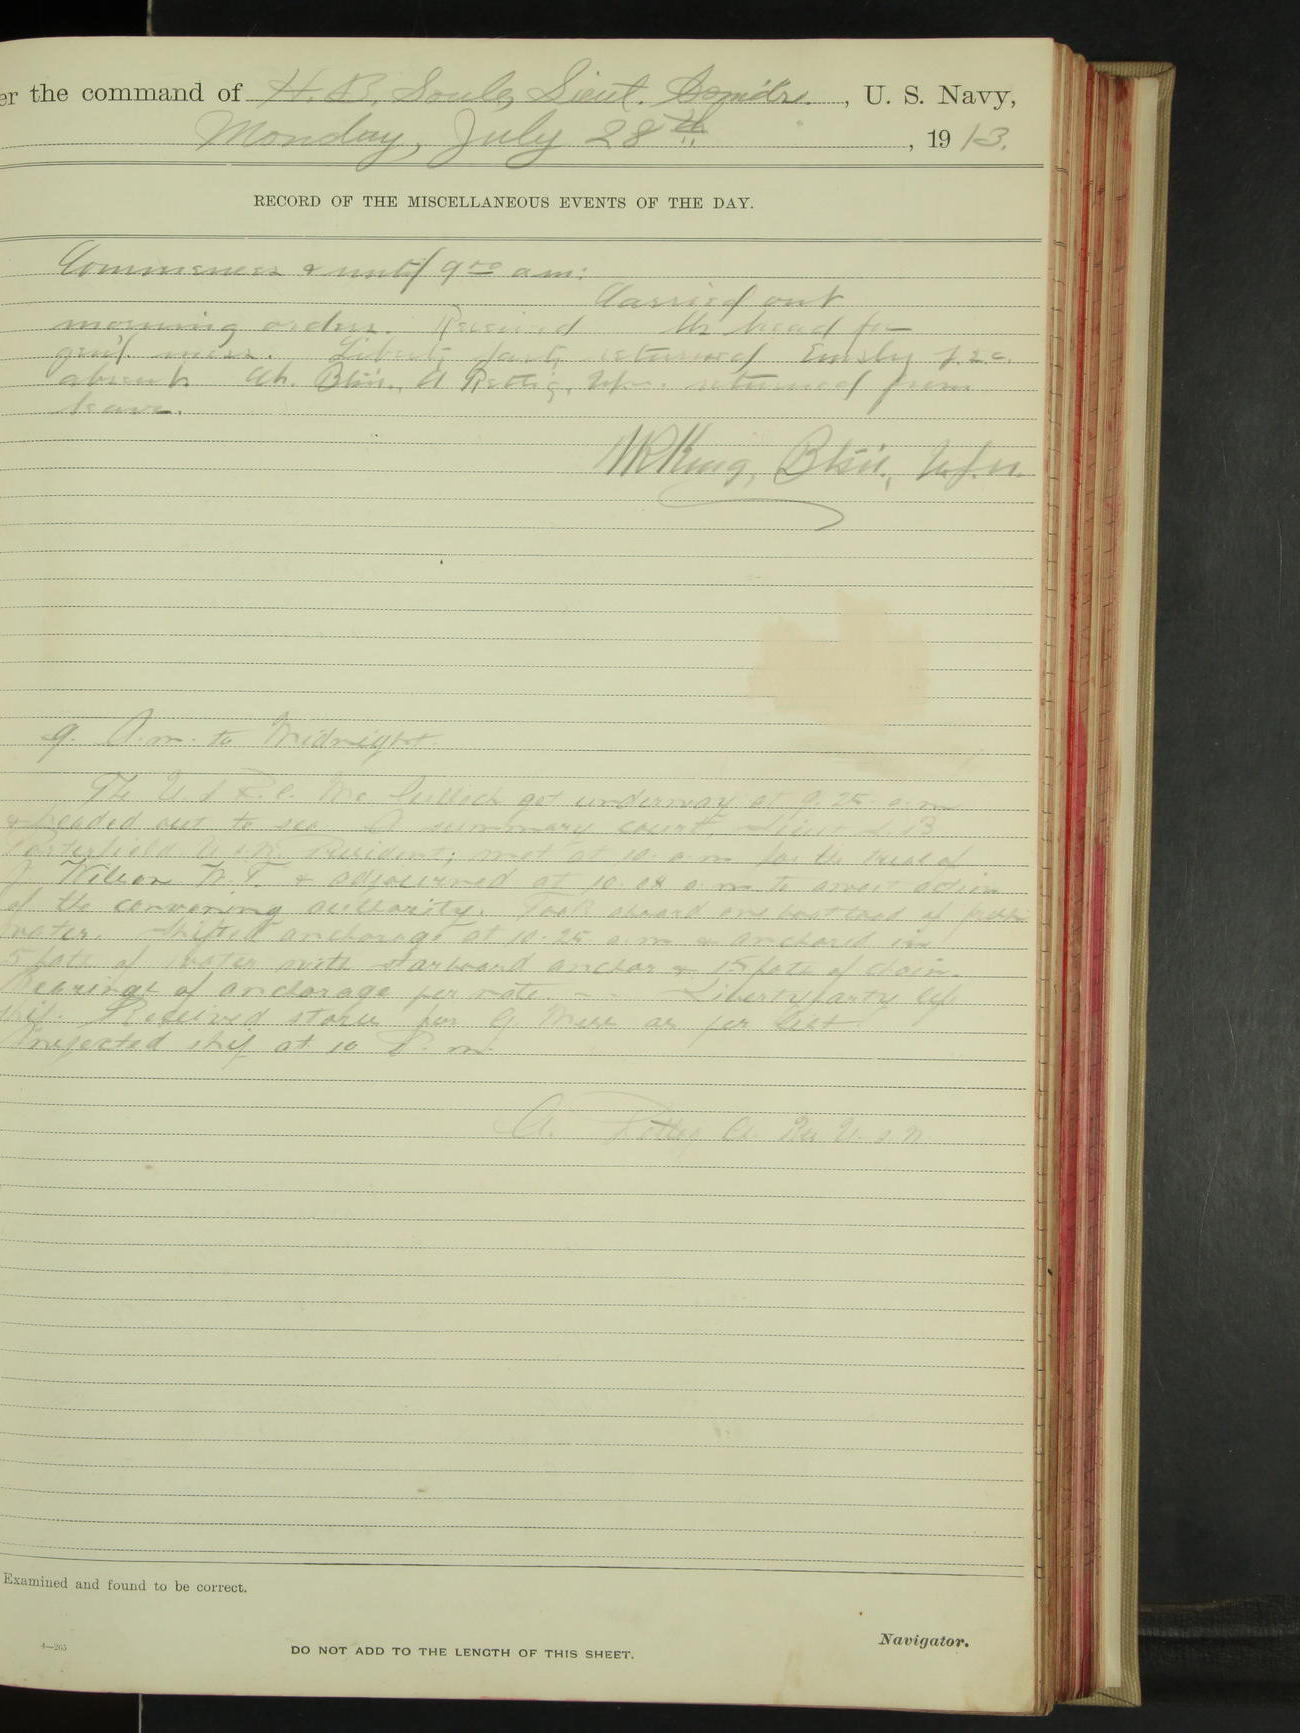 er the command of H. B. Soule, Lieut. Comdr., U. S. Navy,
Monday, July 28th, 1913.
RECORD OF THE MISCELLANEOUS EVENTS OF THE DAY.
Commences & until 9 00 a m:
Carried out
morning orders. Received bread for
gen'l mess. Liberty party returned
absent. Ch. Btsn., A Rettig, returned from
leave.
King, Btsn., U.S.N.
9. A.m. to Midnight.
The U. S R. C. Mc Culloch got underway at 9.25. a.m
& headed out to sea. A summary court, Lieut
President; met at 10. a.m for the trial of
Wilson W. T. & adjourned at 10. a.m to await action
of the convening authority. Took aboard one boat load of fresh
water. Shifted anchorage at 10.25. a.m & anchored in
5 fats of water with starboard anchor & 15 fats of chain.
Bearings of anchorage per note. - - Liberty party left
ship. Received stores for G Mess as per list
Inspected ship at 10 P. m.
A. Rettig U. S. N.
Examined and found to be correct.
4—265
DO NOT ADD TO THE LENGTH OF THIS SHEET.
Navigator.